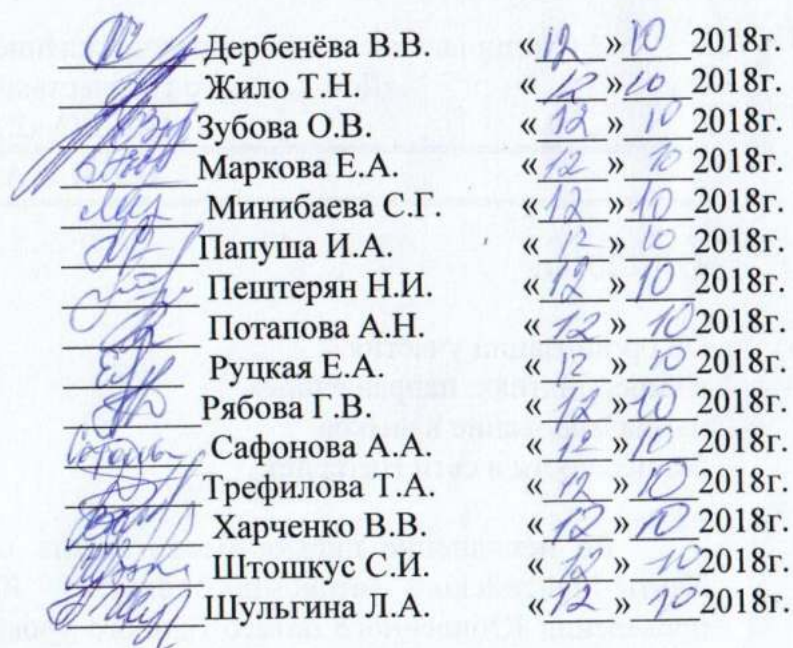 Дербенёва В.В. «12» 10 2018г.
Жило Т.Н. «12» 10 2018г.
Зубова О.В. «12» 10 2018г.
Маркова Е.А. «12» 10 2018г.
Минибаева С.Г. «12» 10 2018г.
Папуша И.А. «12» 10 2018г.
Пештерян Н.И. «12» 10 2018г.
Потапова А.Н. «12» 10 2018г.
Руцкая Е.А. «12» 10 2018г.
Рябова Г.В. «12» 10 2018г.
Сафонова А.А. «12» 10 2018г.
Трефилова Т.А. «12» 10 2018г.
Харченко В.В. «12» 10 2018г.
Штошкус С.И. «12» 10 2018г.
Шульгина Л.А. «12» 10 2018г.